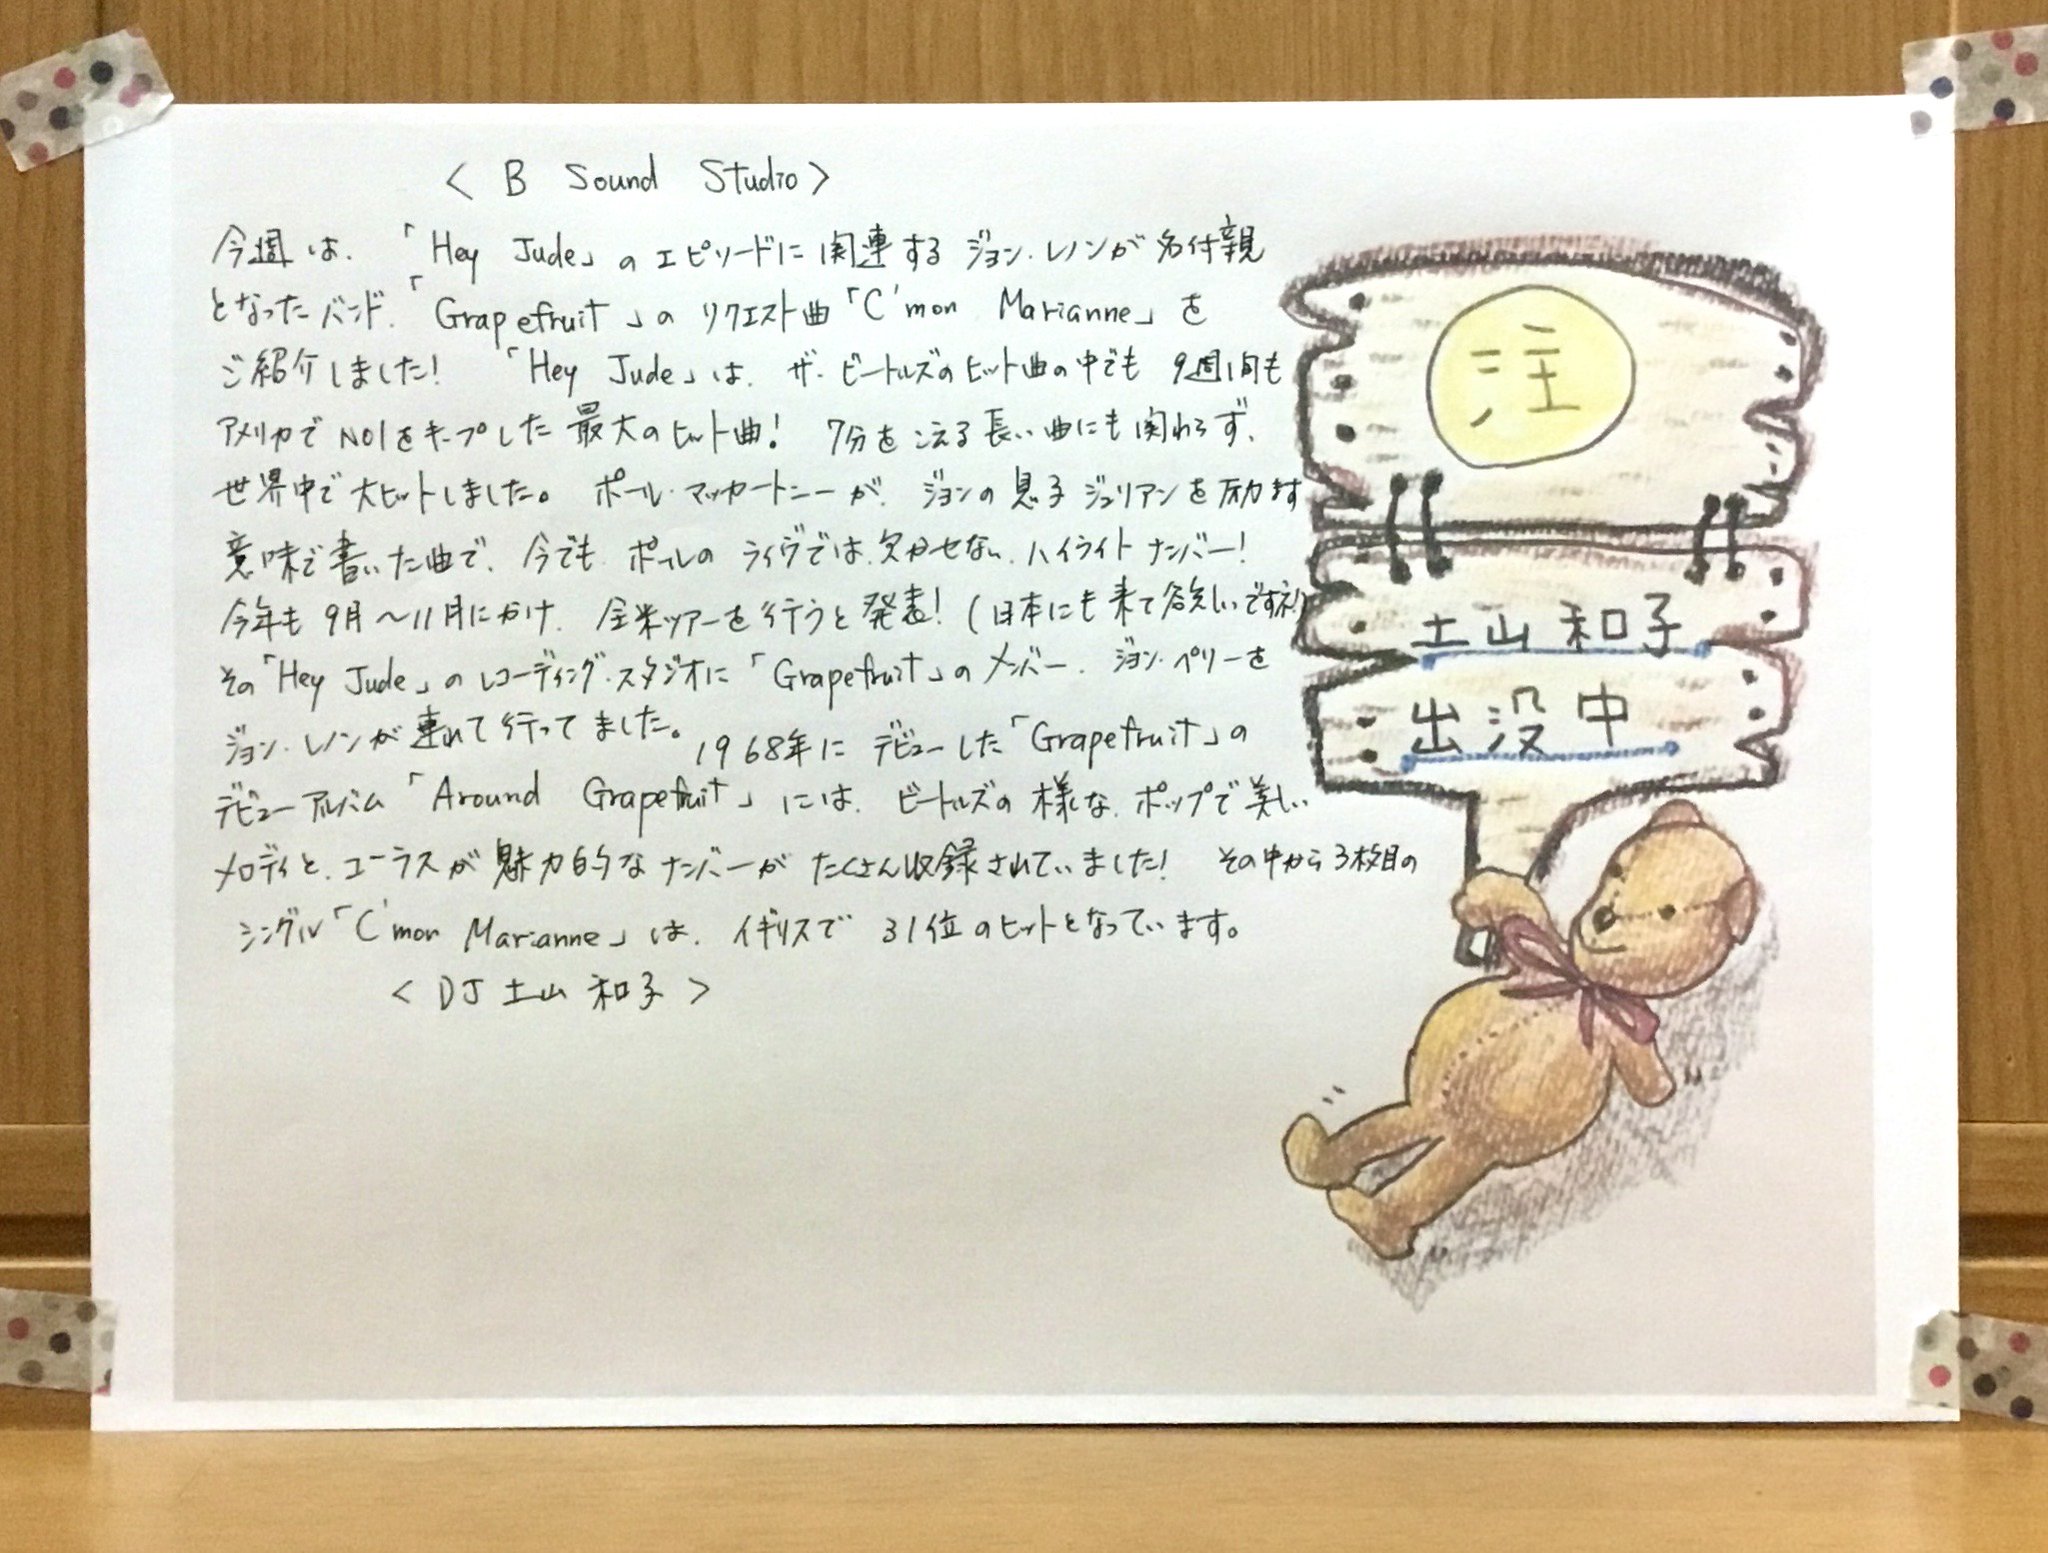 < B Sound Studio >
今週は、「Hey Jude」のエピソードに関連するジョン・レノンが名付親
となったバンド、「Grapefruit」のリクエスト曲「C'mon Marianne」を
ご紹介しました! 「Hey Jude」は、ザ・ビートルズのヒット曲の中でも 9週間も
アメリカでNO1をキープした最大のヒット曲! 7分をこえる長い曲にも関わらず、
世界中で大ヒットしました。 ポール・マッカートニーが、ジョンの息子ジュリアンを励ます
意味で書いた曲で、今でも、ポールのライヴでは、欠かせない、ハイライトナンバー!
今年も9月〜11月にかけ、全米ツアーを行うと発表! (日本にも来て欲しいですネ)
その「Hey Jude」のレコーディング・スタジオに「Grapefruit」のメンバー、ジョン・ペリーを
ジョン・レノンが連れて行ってました。 1968年にデビューした「Grapefruit」の
デビューアルバム「Around Grapefruit」には、ビートルズの様な、ポップで美しい
メロディと、コーラスが魅力的なナンバーがたくさん収録されていました! その中から3枚目の
シングル「C'mon Marianne」は、イギリスで 31位のヒットとなっています。
< DJ 土山 和子 >
注
土山 和子
出没中